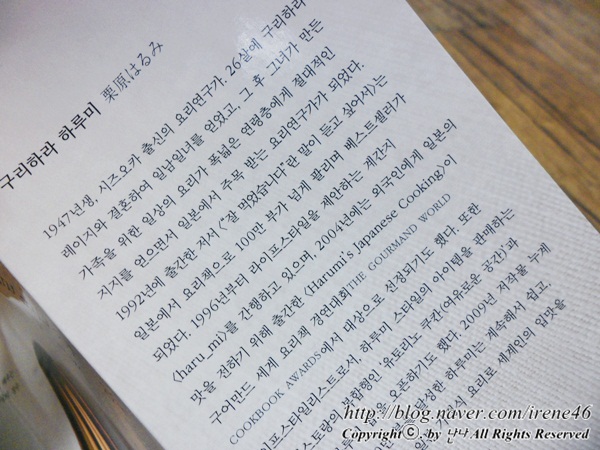 구리하라 하루미 栗原はるみ
1947년생, 시즈오카 출신의 요리연구가. 26살에 구리하라
레이지와 결혼하여 일남일녀를 얻었고, 그 후 그녀가 만든
가족을 위한 일상의 요리가 폭넓은 연령층에게 절대적인
지지를 얻으면서 일본에서 주목 받는 요리연구가가 되었다.
1992년에 출간한 저서 〈"잘 먹었습니다"란 말이 듣고 싶어서〉는
일본에서 요리책으로 100만 부가 넘게 팔리며 베스트셀러가
되었다. 1996년부터 라이프스타일을 제안하는 계간지
〈haru_mi〉를 간행하고 있으며, 2004년에는 외국인에게 일본의
맛을 전하기 위해 출간한 〈Harumi's Japanese Cooking〉이
구어만드 세계 요리책 경연대회THE GOURMAND WORLD
COOKBOOK AWARDS에서 대상으로 선정되기도 했다. 또한
이프스타일리스트로서, 하루미 스타일의 아이템을 판매하는
스토랑의 복합형인 유토리노 쿠칸(여유로운 공간)'과
을 오픈하기도 했다. 2009년 저작물 누계
달성한 하루미는 계속해서 쉽고,
가정식 요리로 세계인의 입맛을
http://blog.naver.com/irene46
Copyrightⓒ. by 난나 All Rights Reserved